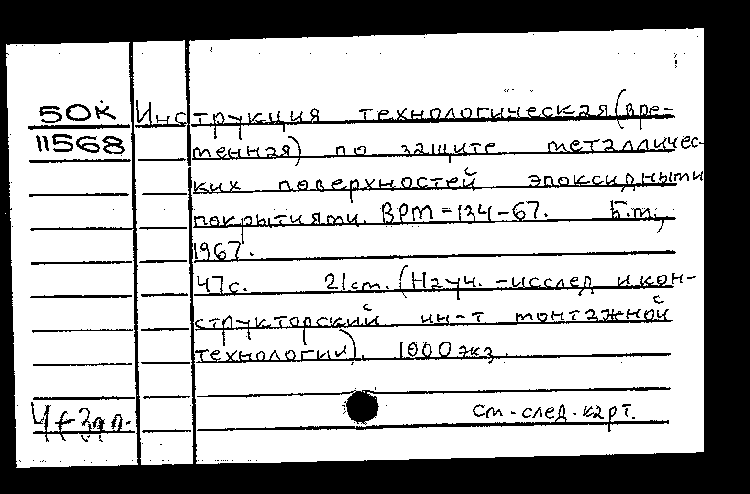 50к Инструкция технологическая (вре-
11568 менная) по защите металличес-
ких поверхностей эпоксидными
покрытиями. ВРМ-134-67. Б.м.,
1967.
47с. 21см. (Науч.-исслед и кон-
структорский ин-т монтажной
технологии). 1000 экз.
см. след. карт.